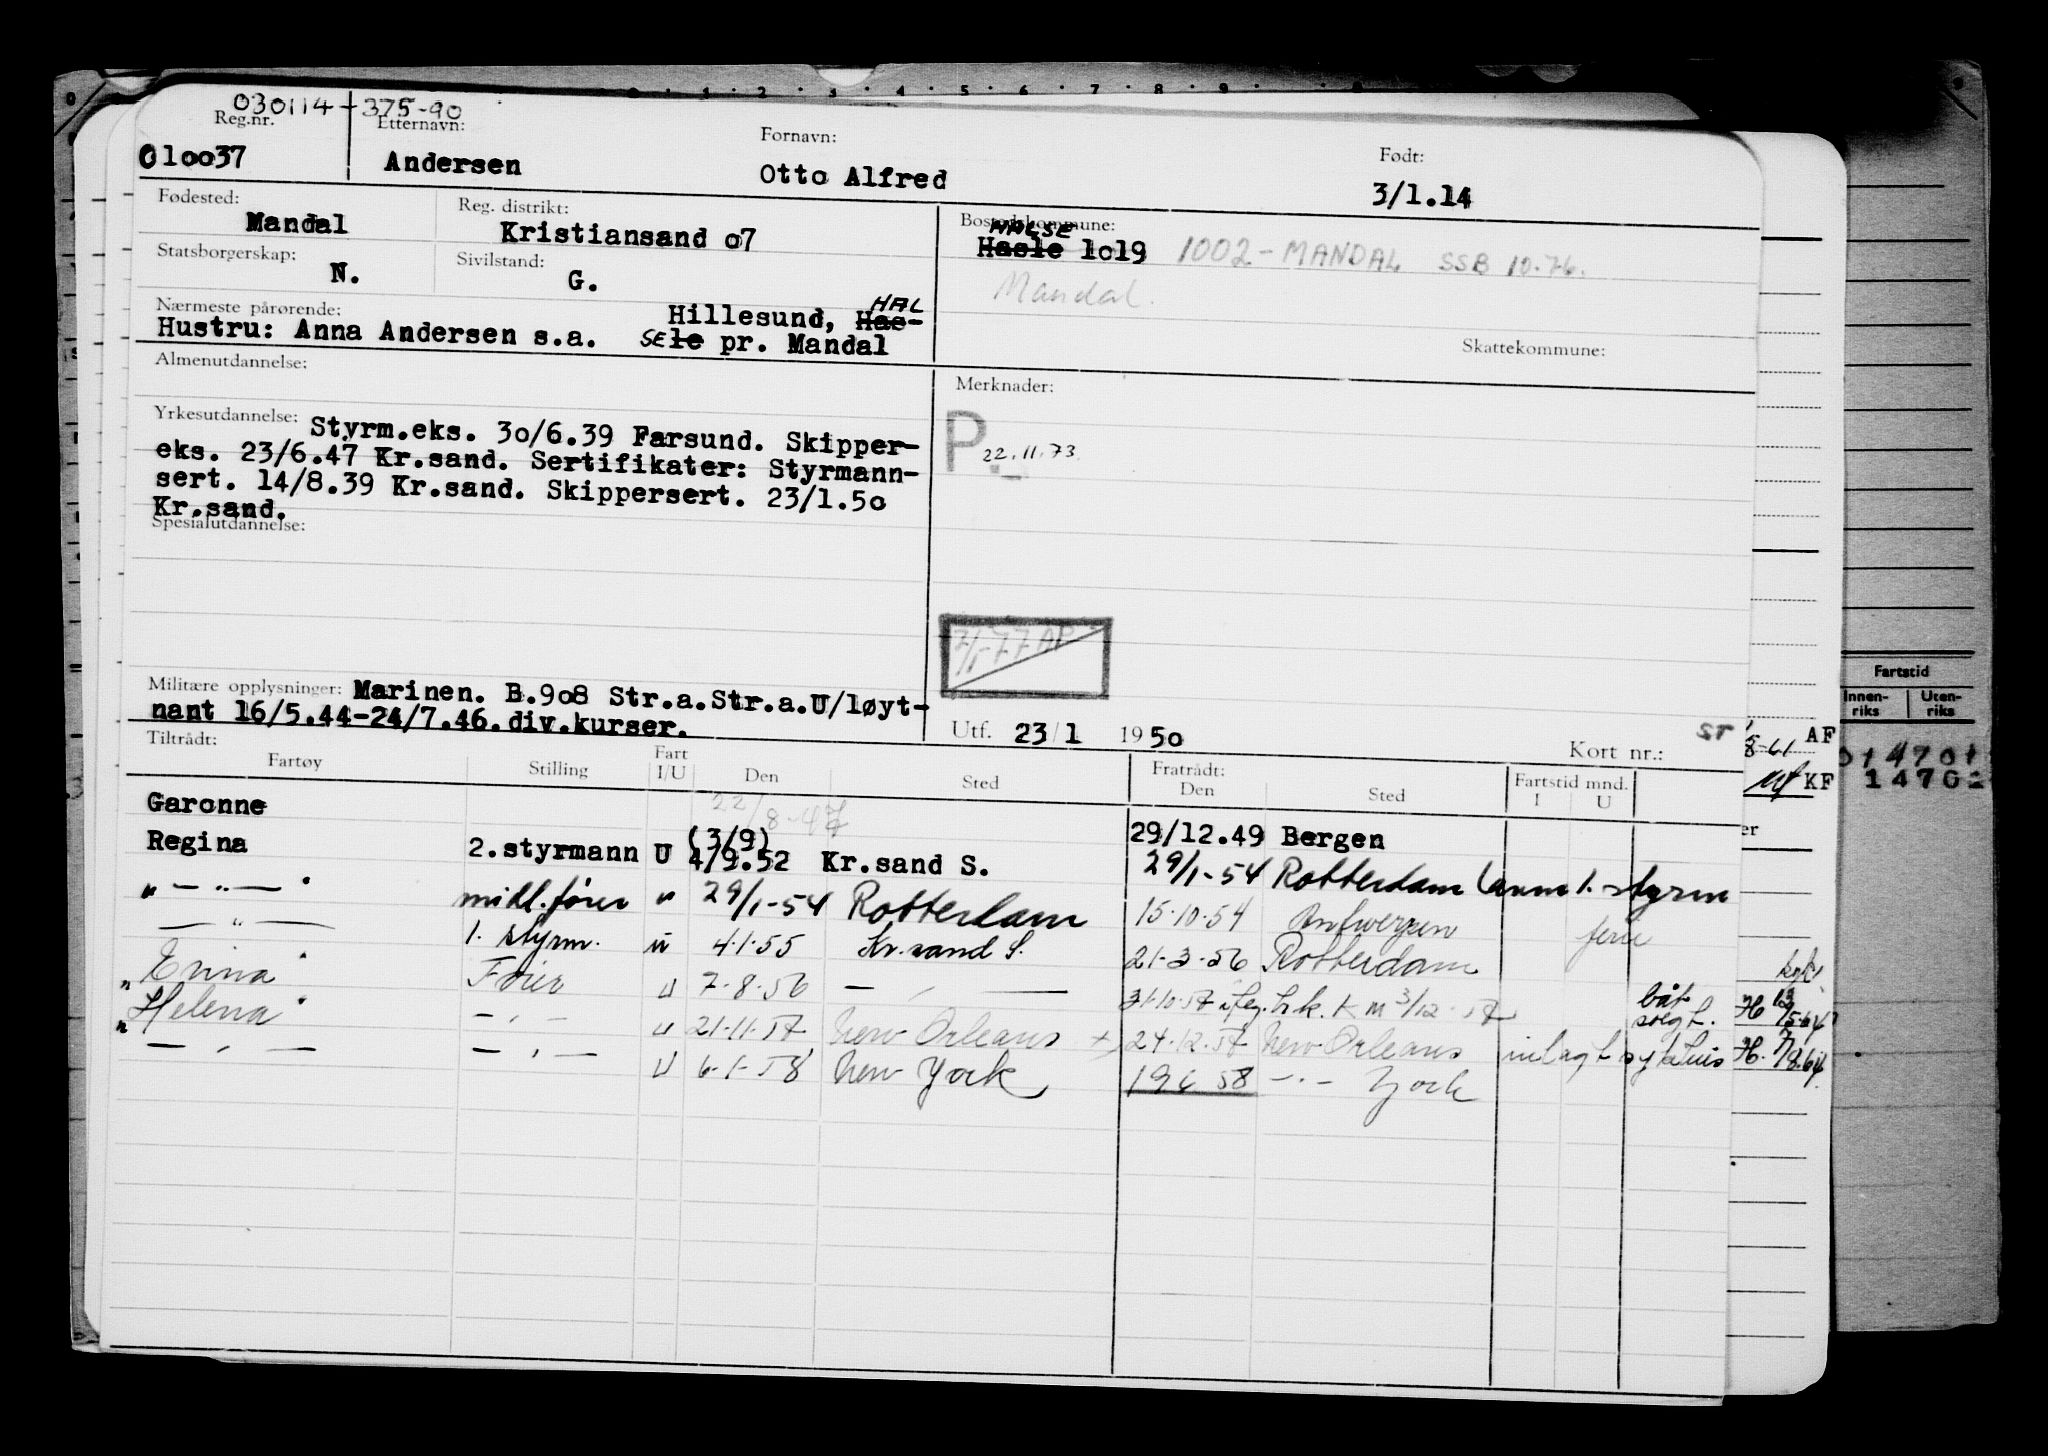 030114-375-90
Reg.nr. Etternavn: Fornavn: Født:
010037 Andersen Otto Alfred 3/1.14
Fødested: Mandal
Reg. distrikt: Kristiansand o7
Bostedskommune: HALSE
Hasle 1o19 1002-MANDAL SSB 10.76.
Mandal.
Statsborgerskap: N.
Sivilstand: G.
Nærmeste pårørende: Hillesund, Has- HAL
Hustru: Anna Andersen s.a. SE le pr. Mandal
Skattekommune:
Almenutdannelse:
Merknader:
P. 22.11.73
Yrkesutdannelse: Styrm.eks. 3o/6.39 Farsund. Skipper-
eks. 23/6.47 Kr.sand. Sertifikater: Styrmann-
sert. 14/8.39 Kr.sand. Skippersert. 23/1.5o
Kr.sand.
Spesialutdannelse:
Militære opplysninger: Marinen. B.9o8 Str.a.Str.a.U/løyt-
nant 16/5.44-24/7.46.div.kurser.
Utf. 23/1 195o
Kort nr.: ST
Tiltrådt: Fratrådt:
Fartøy Stilling Fart I/U Den Sted Den Sted Fartstid mnd. I U
Garonne 22/8-47 29/12.49 Bergen
Regina 2.styrmann U (3/9) 4/9.52 Kr.sand S. 29/1-54 Rotterdam 1. styrm
" — " — " 29/1-54 Rotterdam 15.10.54 Antwerpen ferie
— " — 1. styrm. u 4.1.55 Kr.sand S. 21-3-56 Rotterdam
" Erina " Fører u 7-8-56 — " — 31-10-57 3/12-57 båt solgt.
" Helena " — " — u 21-11-57 New Orleans 24-12-57 New Orleans innlagt sykehus
— " — — " — u 6-1-58 New York 19 6 58 — " — York
Fartstid
Innen-riks Uten-riks
AF
KF
1470